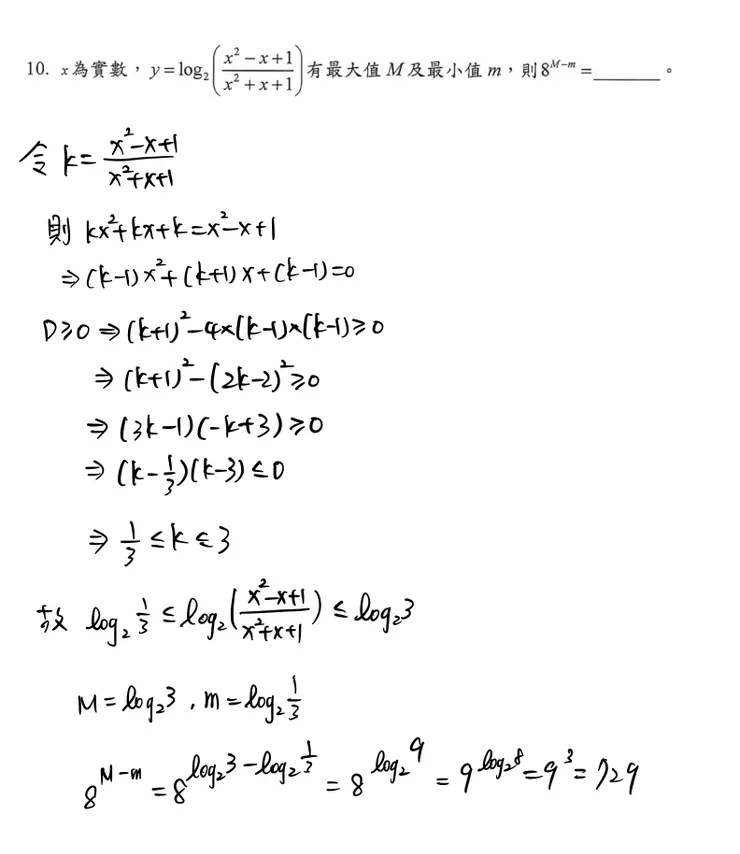 10. x 為實數，y=log₂((x²-x+1)/(x²+x+1))有最大值 M 及最小值 m，則8^(M-m)=______。
令 k=(x²-x+1)/(x²+x+1)
則 kx²+kx+k=x²-x+1
⇒(k-1)x²+(k+1)x+(k-1)=0
D≥0 ⇒(k+1)²-4×(k-1)×(k-1)≥0
⇒(k+1)²-(2k-2)²≥0
⇒(3k-1)(-k+3)≥0
⇒(k-1/3)(k-3)≤0
⇒1/3≤k≤3
故 log₂ 1/3 ≤ log₂((x²-x+1)/(x²+x+1)) ≤ log₂3
M=log₂3 , m=log₂ 1/3
8^(M-m)=8^(log₂3-log₂ 1/3)=8^(log₂9)=9^(log₂8)=9³=729